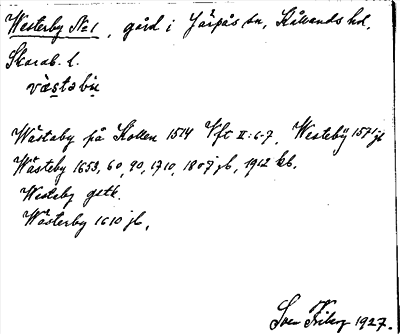 Westerby No 1, gård i Järpås sn, Kållands hd,
Skarab. l.
västabu
Wästaby på Kollen 1514 Vft II:6-7, Westeby 1571 jb
Wästeby 1653, 60, 90, 1710, 1807 jb, 1912 kb.
Westeby geth.
Wästerby 1610 jb,
Sven Friberg 1927.